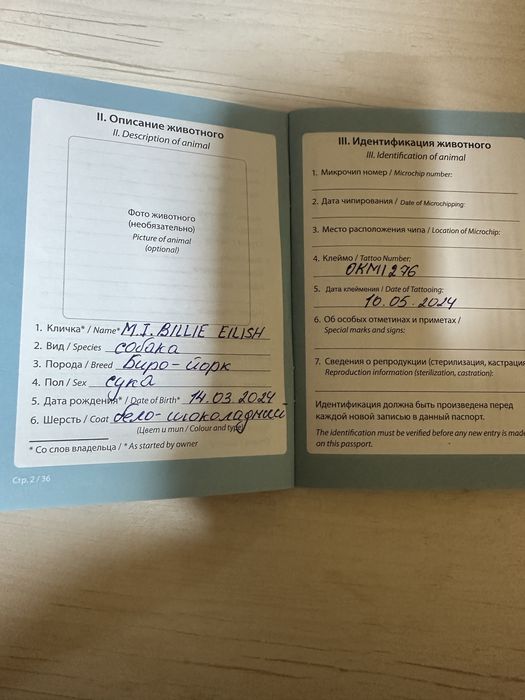 II. Описание животного
II. Description of animal
Фото животного
(необязательно)
Picture of animal
(optional)
1. Кличка* / Name* M.J. BILLIE EILISH
2. Вид / Species собака
3. Порода / Breed Биро-йорк
4. Пол / Sex сука
5. Дата рождения* / Date of Birth* 14.03.2024
6. Шерсть / Coat бело-шоколадный
(Цвет и тип / Colour and type)
* Со слов владельца / * As started by owner
Стр. 2 / 36
III. Идентификация животного
III. Identification of animal
1. Микрочип номер / Microchip number:
2. Дата чипирования / Date of Microchipping:
3. Место расположения чипа / Location of Microchip:
4. Клеймо / Tattoo Number:
OKM1276
5. Дата клеймения / Date of Tattooing:
10.05.2024
6. Об особых отметинах и приметах /
Special marks and signs:
7. Сведения о репродукции (стерилизация, кастрация
Reproduction information (sterilization, castration):
Идентификация должна быть произведена перед
каждой новой записью в данный паспорт.
The identification must be verified before any new entry is made
on this passport.